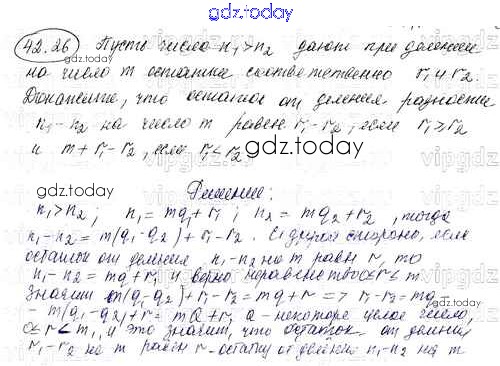 gdz.today
42.26 Пусть число n₁>n₂ дают при делении
на число m остатки соответственно r₁ и r₂.
Докажите, что остаток от деления разности
n₁-n₂ на число m равен r₁-r₂, если r₁⩾r₂
и m+r₁-r₂, если r₁<r₂
gdz.today
Решение:
n₁>n₂; n₁=mq₁+r₁; n₂=mq₂+r₂, тогда
n₁-n₂=m(q₁-q₂)+r₁-r₂. С другой стороны, если
остаток от деления n₁-n₂ на m равен r, то
n₁-n₂=mq+r, и верно неравенство 0⩽r<m
Значит m(q₁-q₂)+r₁-r₂=mq+r => r₁-r₂=mq-
-m(q₁-q₂)+r=mQ+r, Q-некоторое целое число,
0⩽r<m, и это значит, что остаток от деления
r₁-r₂ на m равен r-остатку от деления n₁-n₂ на m
gdz.today
gdz.today